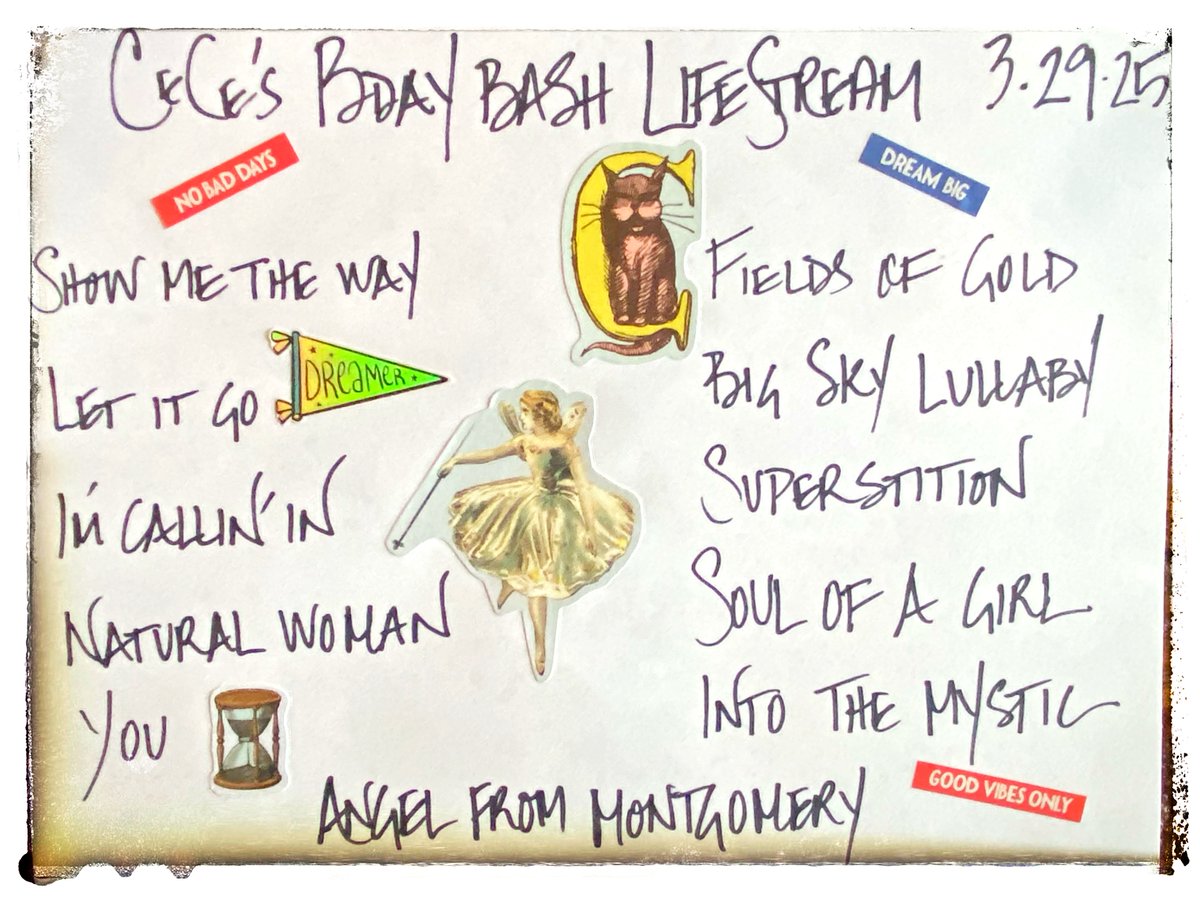 CeCe's BDAY BASH LIFESTREAM 3.29.25
NO BAD DAYS
DREAM BIG
SHOW ME THE WAY
LET IT GO
DREAMER
I'M CALLIN' IN
NATURAL WOMAN
YOU
FIELDS OF GOLD
BIG SKY LULLABY
SUPERSTITION
SOUL OF A GIRL
INTO THE MYSTIC
ANGEL FROM MONTGOMERY
GOOD VIBES ONLY